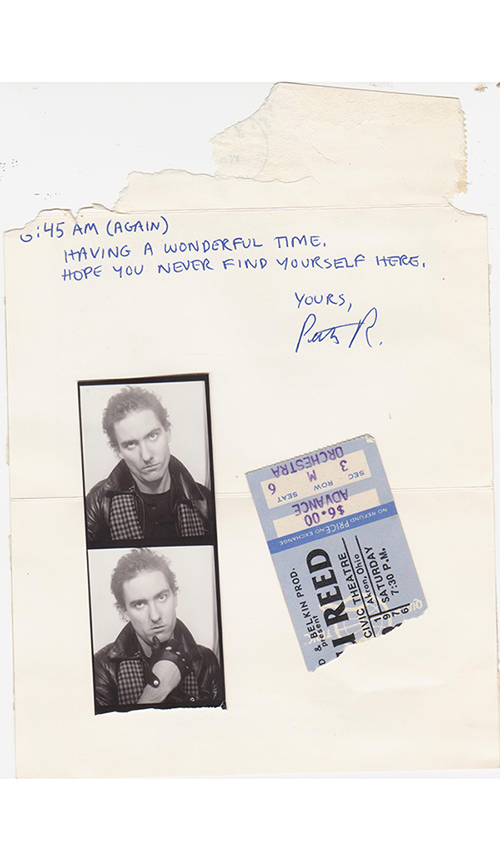 6:45 AM (AGAIN)
HAVING A WONDERFUL TIME.
HOPE YOU NEVER FIND YOURSELF HERE.
YOURS,
Peter R.
NO REFUND PRICE NO EXCHANGE
$6.00
ADVANCE
SEC ROW SEAT
3 M 6
ORCHESTRA
D & BELKIN PROD.
present
U REED
CIVIC THEATRE
Akron, Ohio
SATURDAY
7:30 P.M.